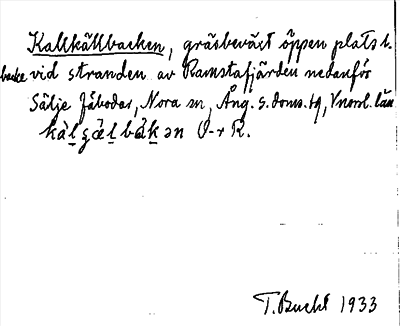 Kallkällbacken, gräsbeväxt öppen plats l.
backe vid stranden av Ramstafjärden nedanför
Sälje Fäbodar, Nora sn, Ång. s. doms. tg, Vnorrl. län
O-r R.
T. Bucht 1933